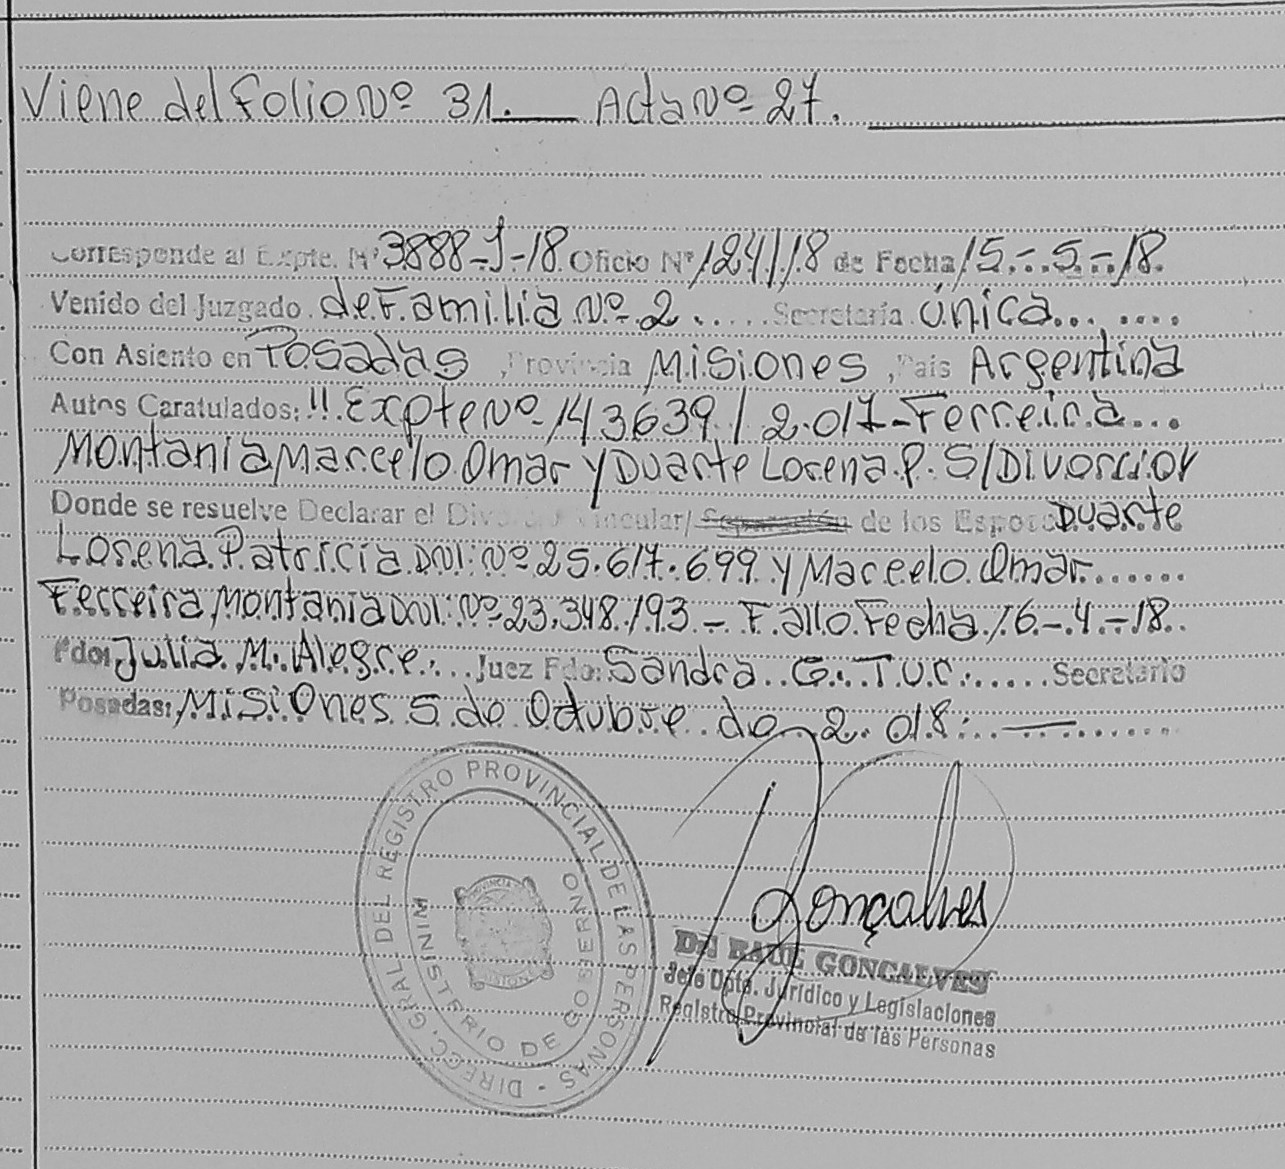 Viene del Folio Nº 31. Acta Nº 27.
Corresponde al Expte. Nº 3888-J-18 Oficio Nº 1241/18 de Fecha 15-5-18.
Venido del Juzgado de Familia Nº 2..... Secretaría Única.......
Con Asiento en Posadas, Provincia Misiones, País Argentina
Autos Caratulados: "Expte Nº 143639/2.017-Ferreira...
Montania Marcelo Omar y Duarte Lorena P. S/Divorcio"
Donde se resuelve Declarar el Divorcio Vincular/ Separación de los Esposos Duarte
Lorena Patricia DNI: Nº 25.617.699 y Marcelo Omar.......
Ferreira Montania DNI: Nº 23.348.193 - Fallo Fecha 16-4-18..
Fdo: Julia M. Alegre.... Juez Fdo: Sandra G. Tur...... Secretario
Posadas: Misiones 5 de Octubre de 2.018:
DIRECC. GRAL DEL REGISTRO PROVINCIAL DE LAS PERSONAS -
MINISTERIO DE GOBIERNO
Gonçalves
Dr. RAUL GONCALVES
Jefe Dpto. Jurídico y Legislaciones
Registro Provincial de las Personas